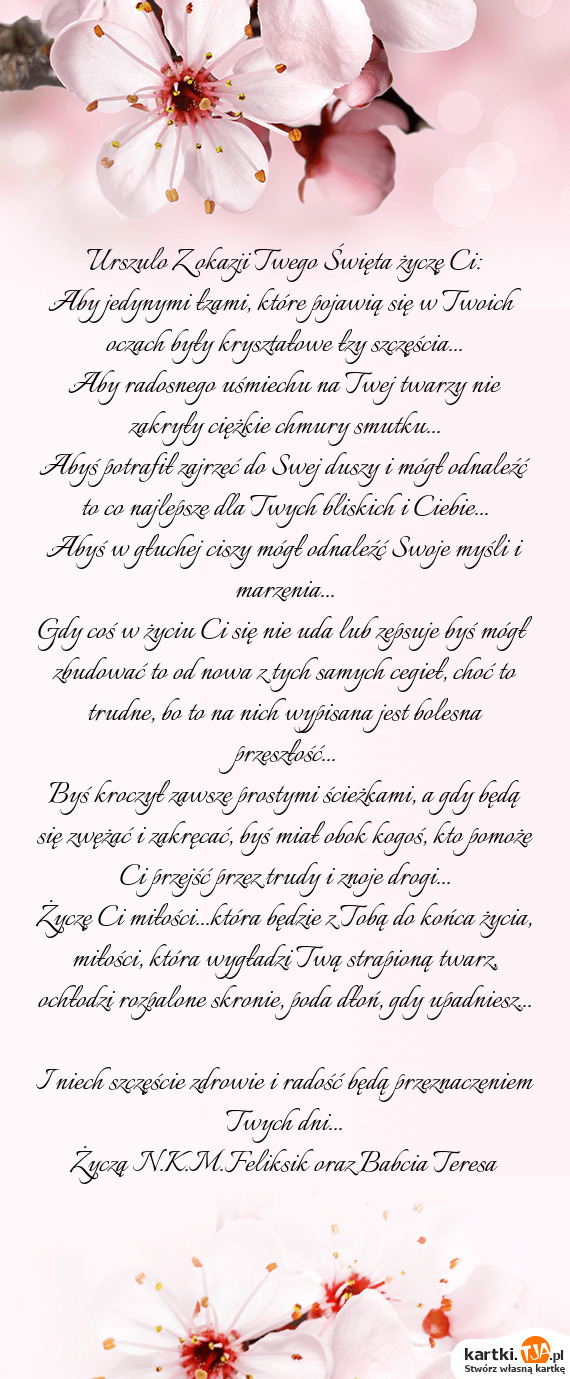 Urszulo Z okazji Twego Święta życzę Ci:
Aby jedynymi łzami, które pojawią się w Twoich
oczach były kryształowe łzy szczęścia...
Aby radosnego uśmiechu na Twej twarzy nie
zakryły ciężkie chmury smutku...
Abyś potrafił zajrzeć do Swej duszy i mógł odnaleźć
to co najlepsze dla Twych bliskich i Ciebie...
Abyś w głuchej ciszy mógł odnaleźć Swoje myśli i
marzenia...
Gdy coś w życiu Ci się nie uda lub zepsuje byś mógł
zbudować to od nowa z tych samych cegieł, choć to
trudne, bo to na nich wypisana jest bolesna
przeszłość...
Byś kroczył zawsze prostymi ścieżkami, a gdy będą
się zwężać i zakręcać, byś miał obok kogoś, kto pomoże
Ci przejść przez trudy i znoje drogi...
Życzę Ci miłości...która będzie z Tobą do końca życia,
miłości, która wygładzi Twą strapioną twarz,
ochłodzi rozpalone skronie, poda dłoń, gdy upadniesz...
I niech szczęście zdrowie i radość będą przeznaczeniem
Twych dni...
Życzą N.K.M.Feliksik oraz Babcia Teresa
kartki.TJA.pl
Stwórz własną kartkę